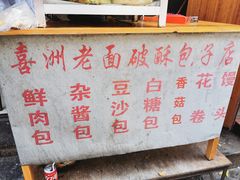 喜洲老面破酥包子店
鲜肉包
杂酱包
豆沙包
白糖包
香菇包
花卷
馒头